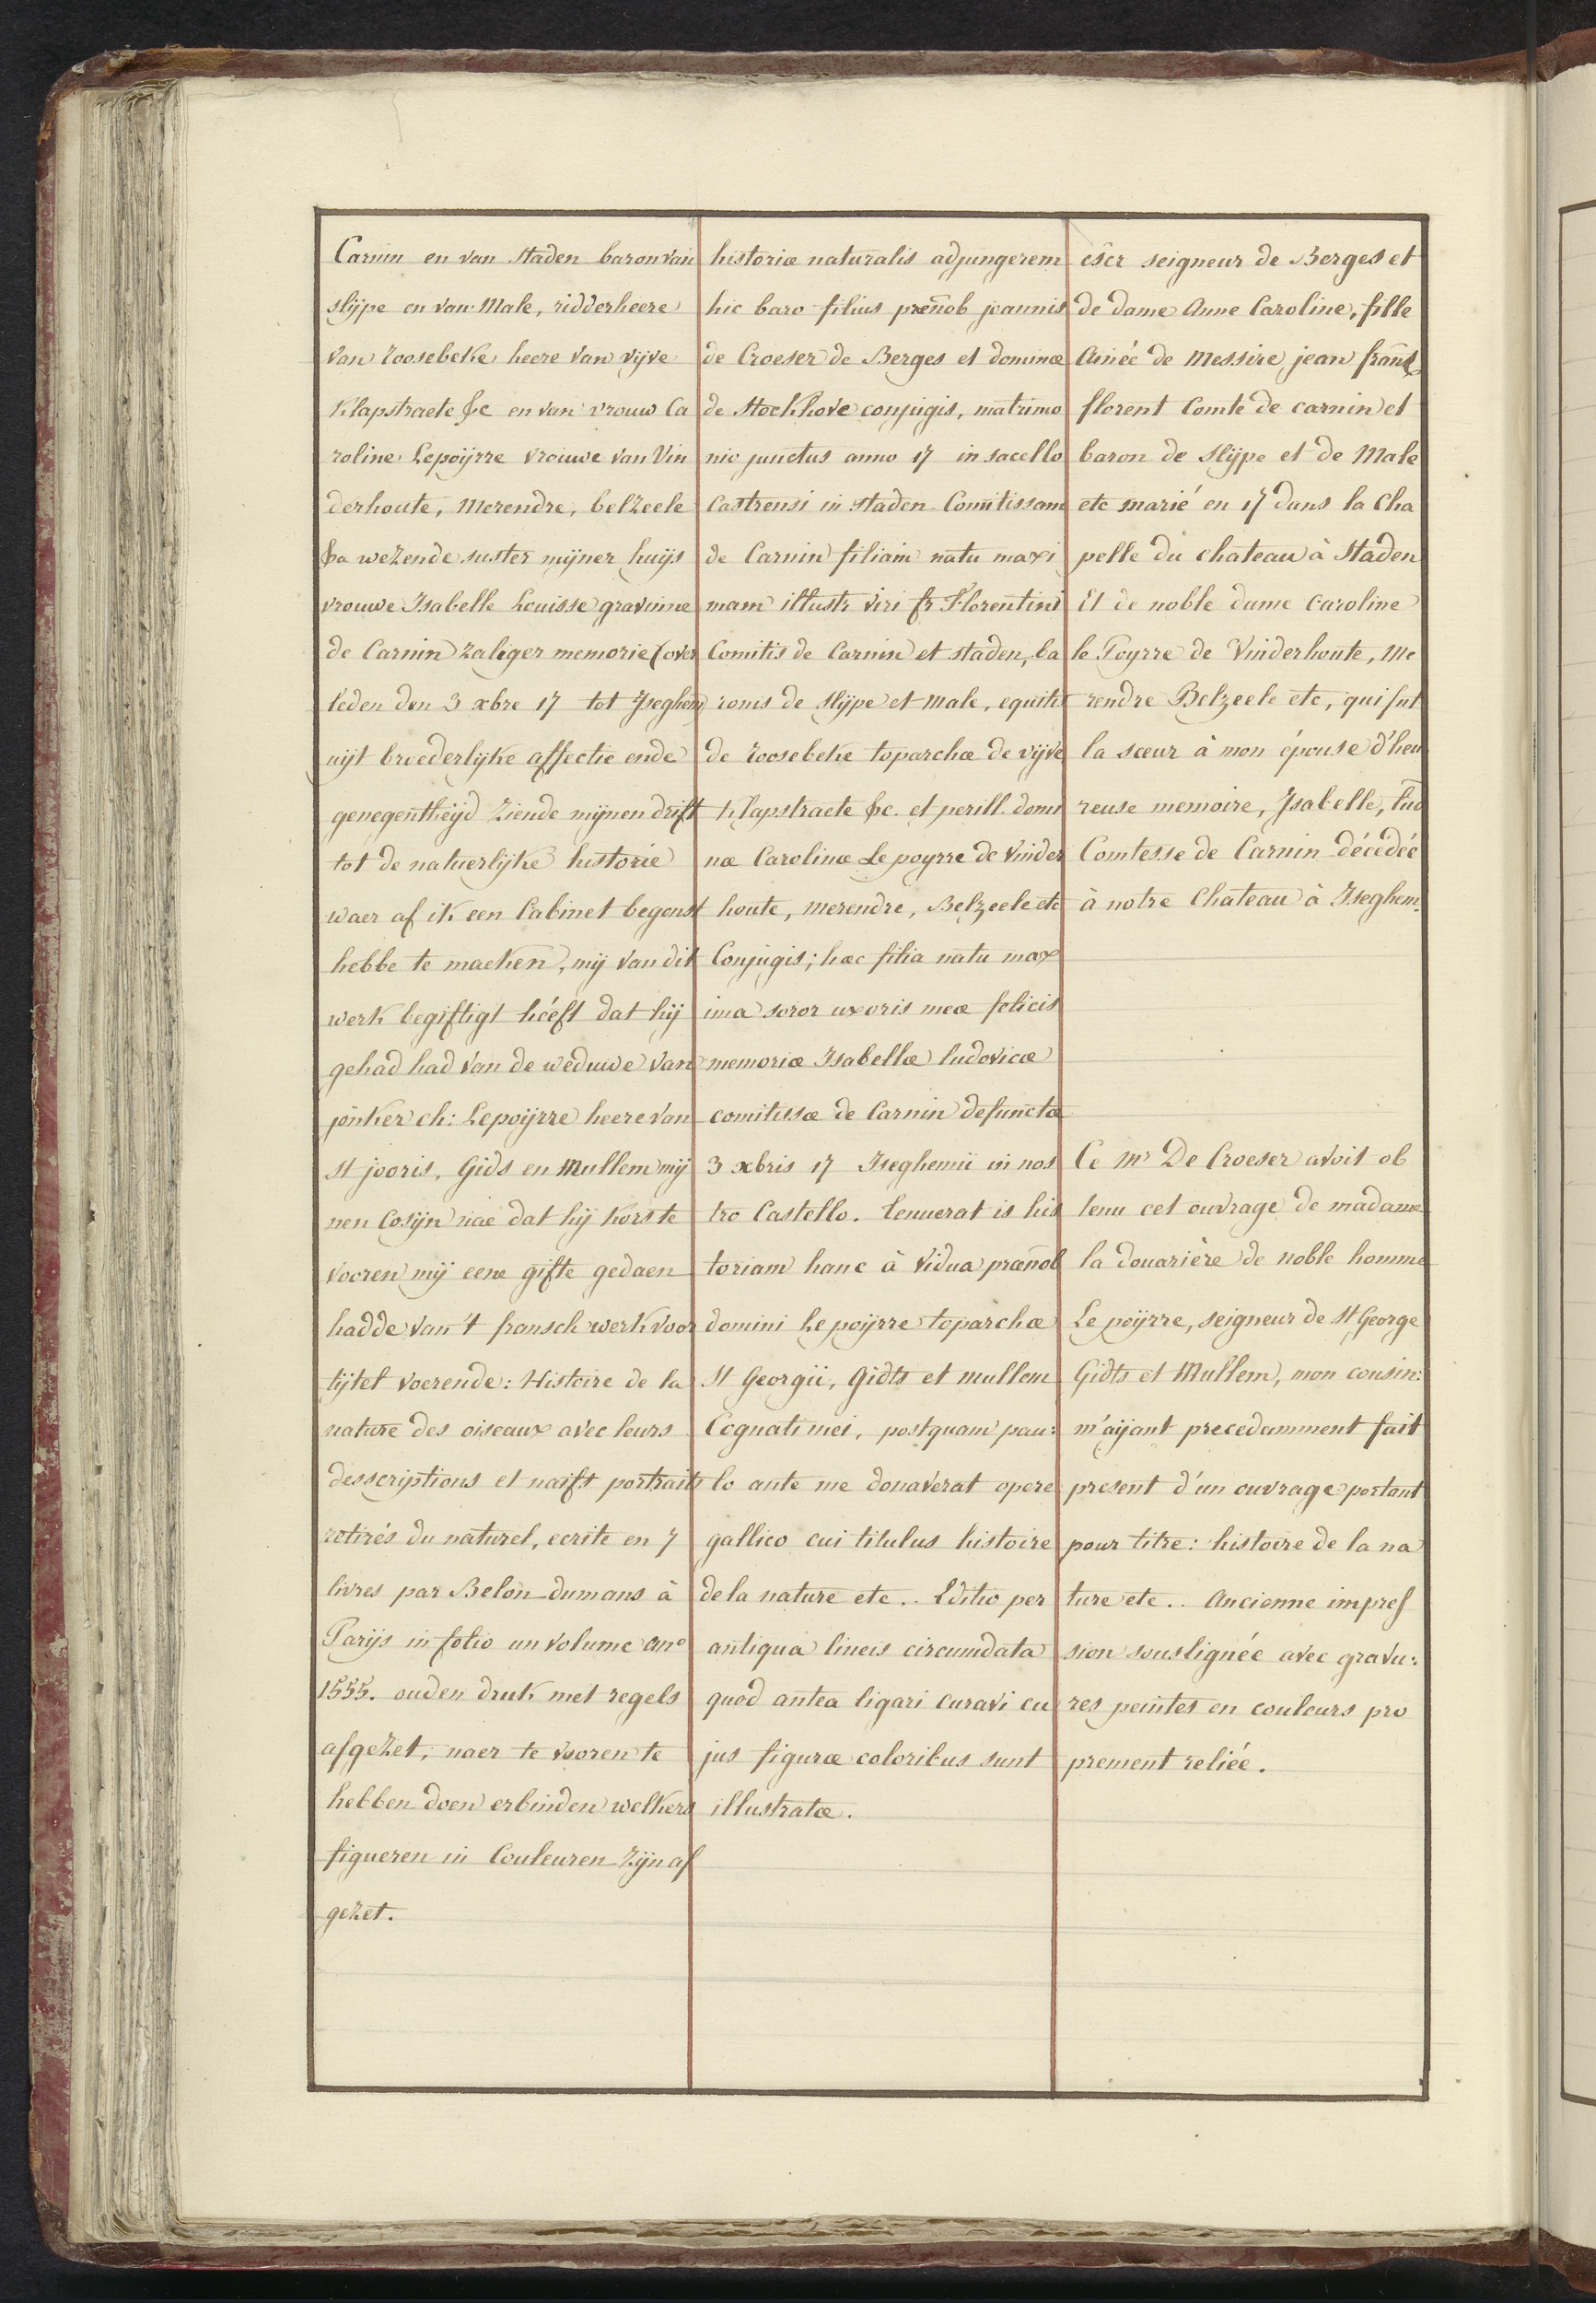 Carnin en van Staden baron van
slijpe en van Male, ridderheere
van Roosebeke heere van vijve
Klapstraete &c en van vrouw Ca
roline Lepoÿrre vrouwe van Vin
derhoute, Merendre, belzeele
&a wezende suster mijner huijs
vrouwe Isabelle Louisse gravinne
de Carnin zaliger memorie (over
leden den 3 xbre 17 tot Iseghem
uijt broederlijke affectie ende
genegentheijd ziende mijnen drift
tot de natuerlijke historie
waer af ik een Cabinet begonst
hebbe te maeken, mij van dit
werk begiftigt hééft dat hij
gehad had van de weduwe van
jonker ch: Lepoijrre heere van
st jooris, Gids en Mullem mij
nen Cosijn nae dat hij korste
vooren mij eene gifte gedaen
hadde van 't fransch werk voor
tijtel voerende: Histoire de la
nature des oiseaux avec leurs
desscriptions et naifs portraits
retirés du naturel, ecrite en 7
livres par Belon dumans à
Parijs in folio un volume Ano
1555. ouden druk met regels
afgezet, naer te vooren te
hebben doen erbinden welkers
figueren in Couleuren zijn af
gezet.
historiæ naturalis adjungerem
hic baro filius prenob joannis
de Croeser de Berges et dominæ
de Stockhove conjugis, matrimo
nio junctus anno 17 in sacello
Castrensi in staden Comitissam
de Carnin filiam natu maxi
mam illustr viri fr Florentini
Comitis de Carnin et staden, ba
ronis de slijpe et Male, equitis
de Roosebeke toparchæ de vijve
Klapstraete &c. et perill. domi
næ Carolinæ Le poyrre de Vinder
houte, merendre, Belzeele etc
Conjugis; hæc filia natu max
ima soror uxoris meæ felicis
memoriæ Isabellæ ludovicæ
comitissæ de Carnin defunctæ
3 xbris 17 Iseghemii in nos
tro Castello. tenuerat is his
toriam hanc à vidua prænob
domini Le poijrre toparchæ
St Georgii, Gidts et mullem
Cognati mei, postquam pau:
lo ante me donaverat opere
gallico cui titulus histoire
de la nature etc .. Editio per
antiqua lineis circumdata
quod antea ligari curavi cu
jus figuræ coloribus sunt
illustratæ.
escr seigneur de Berges et
de dame Anne Caroline, fille
Ainée de Messire jean frans
florent Comte de carnin et
baron de slijpe et de Male
etc marié en 17 dans la Cha
pelle du chateau à Staden
Et de noble dame caroline
le Poyrre de Vinderhoute, Me
rendre Belzeele etc, qui fut
la sœur à mon épouse d'heu
reuse memoire, Isabelle, lud
Comtesse de Carnin décédéé
à notre Chateau à Iseghem.
Ce Mr De Croeser avoit ob
tenu cet ouvrage de madame
la douarière de noble homme
Le poijrre, seigneur de St George
Gidts et Mullem, mon cousin:
m'aijant precedamment fait
present d'un ouvrage portant
pour titre: histoire de la na
ture etc .. Ancienne impres
sion souslignée avec gravu:
res peintes en couleurs pro
prement reliéé.